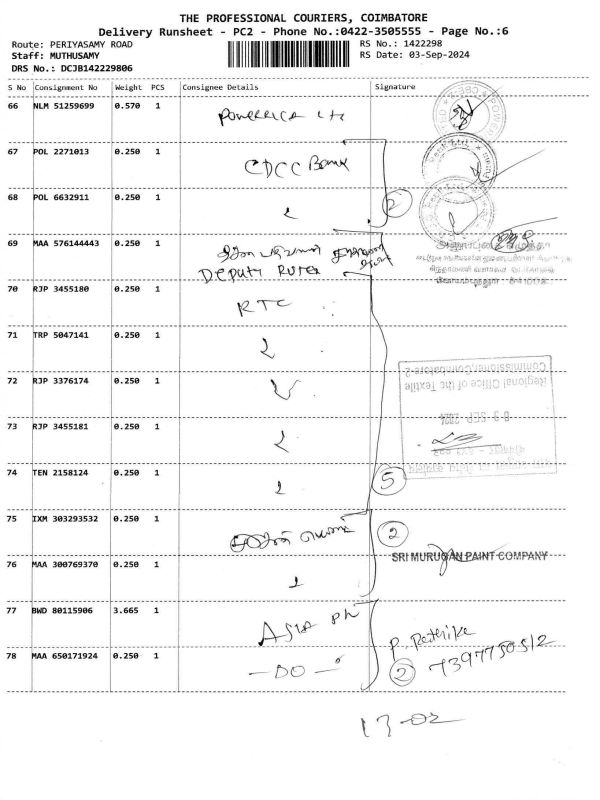 THE PROFESSIONAL COURIERS, COIMBATORE
Delivery Runsheet - PC2 - Phone No.:0422-3505555 - Page No.:6
Route: PERIYASAMY ROAD
RS No.: 1422298
Staff: MUTHUSAMY
RS Date: 03-Sep-2024
DRS No.: DCJB142229806
S No Consignment No Weight PCS Consignee Details Signature
66 NLM 51259699 0.570 1
67 POL 2271013 0.250 1 CDCC Bank
68 POL 6632911 0.250 1 2
69 MAA 576144443 0.250 1
Deputy
70 RJP 3455180 0.250 1 RTC
71 TRP 5047141 0.250 1
72 RJP 3376174 0.250 1
Regional Office of the Textile
Commissioner, Coimbatore-2
03 SEP 2024
73 RJP 3455181 0.250 1
74 TEN 2158124 0.250 1 5
75 IXM 303293532 0.250 1 2
SRI MURUGAN PAINT COMPANY
76 MAA 300769370 0.250 1
77 BWD 80115906 3.665 1 Asia
P. Rethike
78 MAA 650171924 0.250 1 -DO- 2 7397750512
17-02